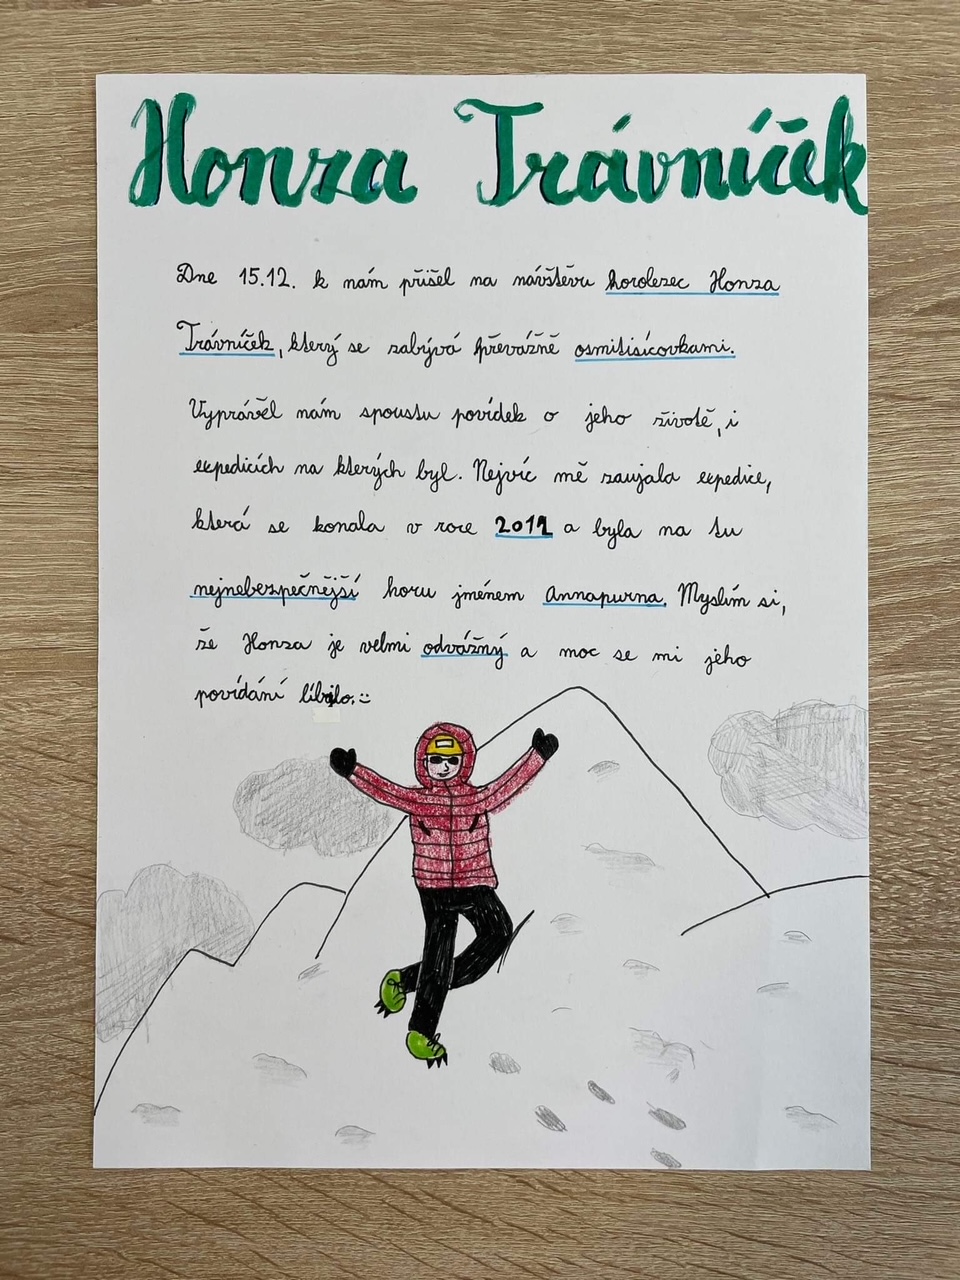 Honza Trávníček
Dne 15.12. k nám přišel na návštěvu horolezec Honza
Trávníček, který se zabývá převážně osmitisícovkami.
Vyprávěl nám spoustu povídek o jeho životě, i
expedicích na kterých byl. Nejvíc mě zaujala expedice,
která se konala v roce a byla na tu
nejnebezpečnější horu jménem Annapurna. Myslím si,
že Honza je velmi odvážný a moc se mi jeho
povídání líbilo. :)